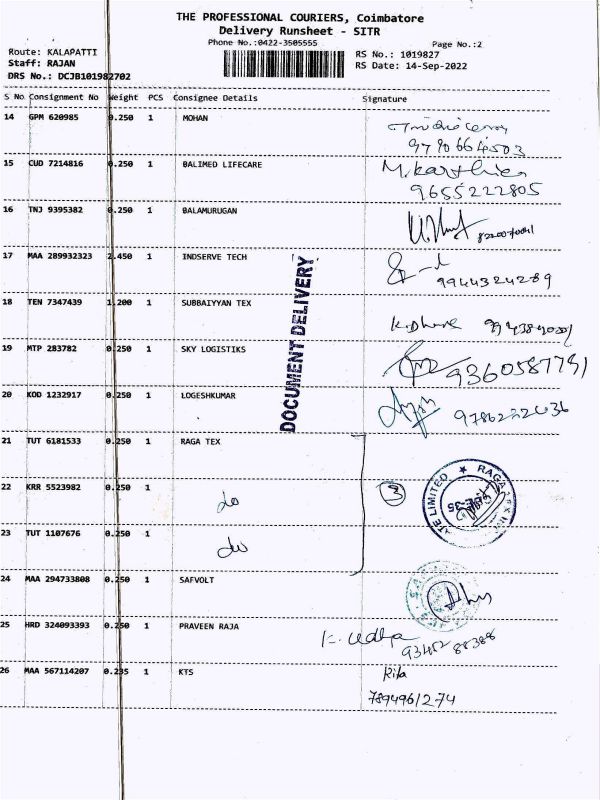 THE PROFESSIONAL COURIERS, Coimbatore
Delivery Runsheet - SITR
Phone No.:0422-3505555 Page No.:2
Route: KALAPATTI RS No.: 1019827
Staff: RAJAN RS Date: 14-Sep-2022
DRS No.: DCJB101982702
S No Consignment No Weight PCS Consignee Details Signature
14 GPM 620985 0.250 1 MOHAN
15 CUD 7214816 0.250 1 BALIMED LIFECARE M. Karthica
9655222805
16 TNJ 9395382 0.250 1 BALAMURUGAN
17 MAA 289932323 2.450 1 INDSERVE TECH
9944324289
18 TEN 7347439 1.200 1 SUBBAIYYAN TEX
19 MTP 283782 0.250 1 SKY LOGISTIKS
20 KOD 1232917 0.250 1 LOGESHKUMAR
DOCUMENT DELIVERY
21 TUT 6181533 0.250 1 RAGA TEX
22 KRR 5523982 0.250 1 do 3
23 TUT 1107676 0.250 1 do
24 MAA 294733808 0.250 1 SAFVOLT
25 HRD 324093393 0.250 1 PRAVEEN RAJA
26 MAA 567114207 0.235 1 KTS Rita
7894961274